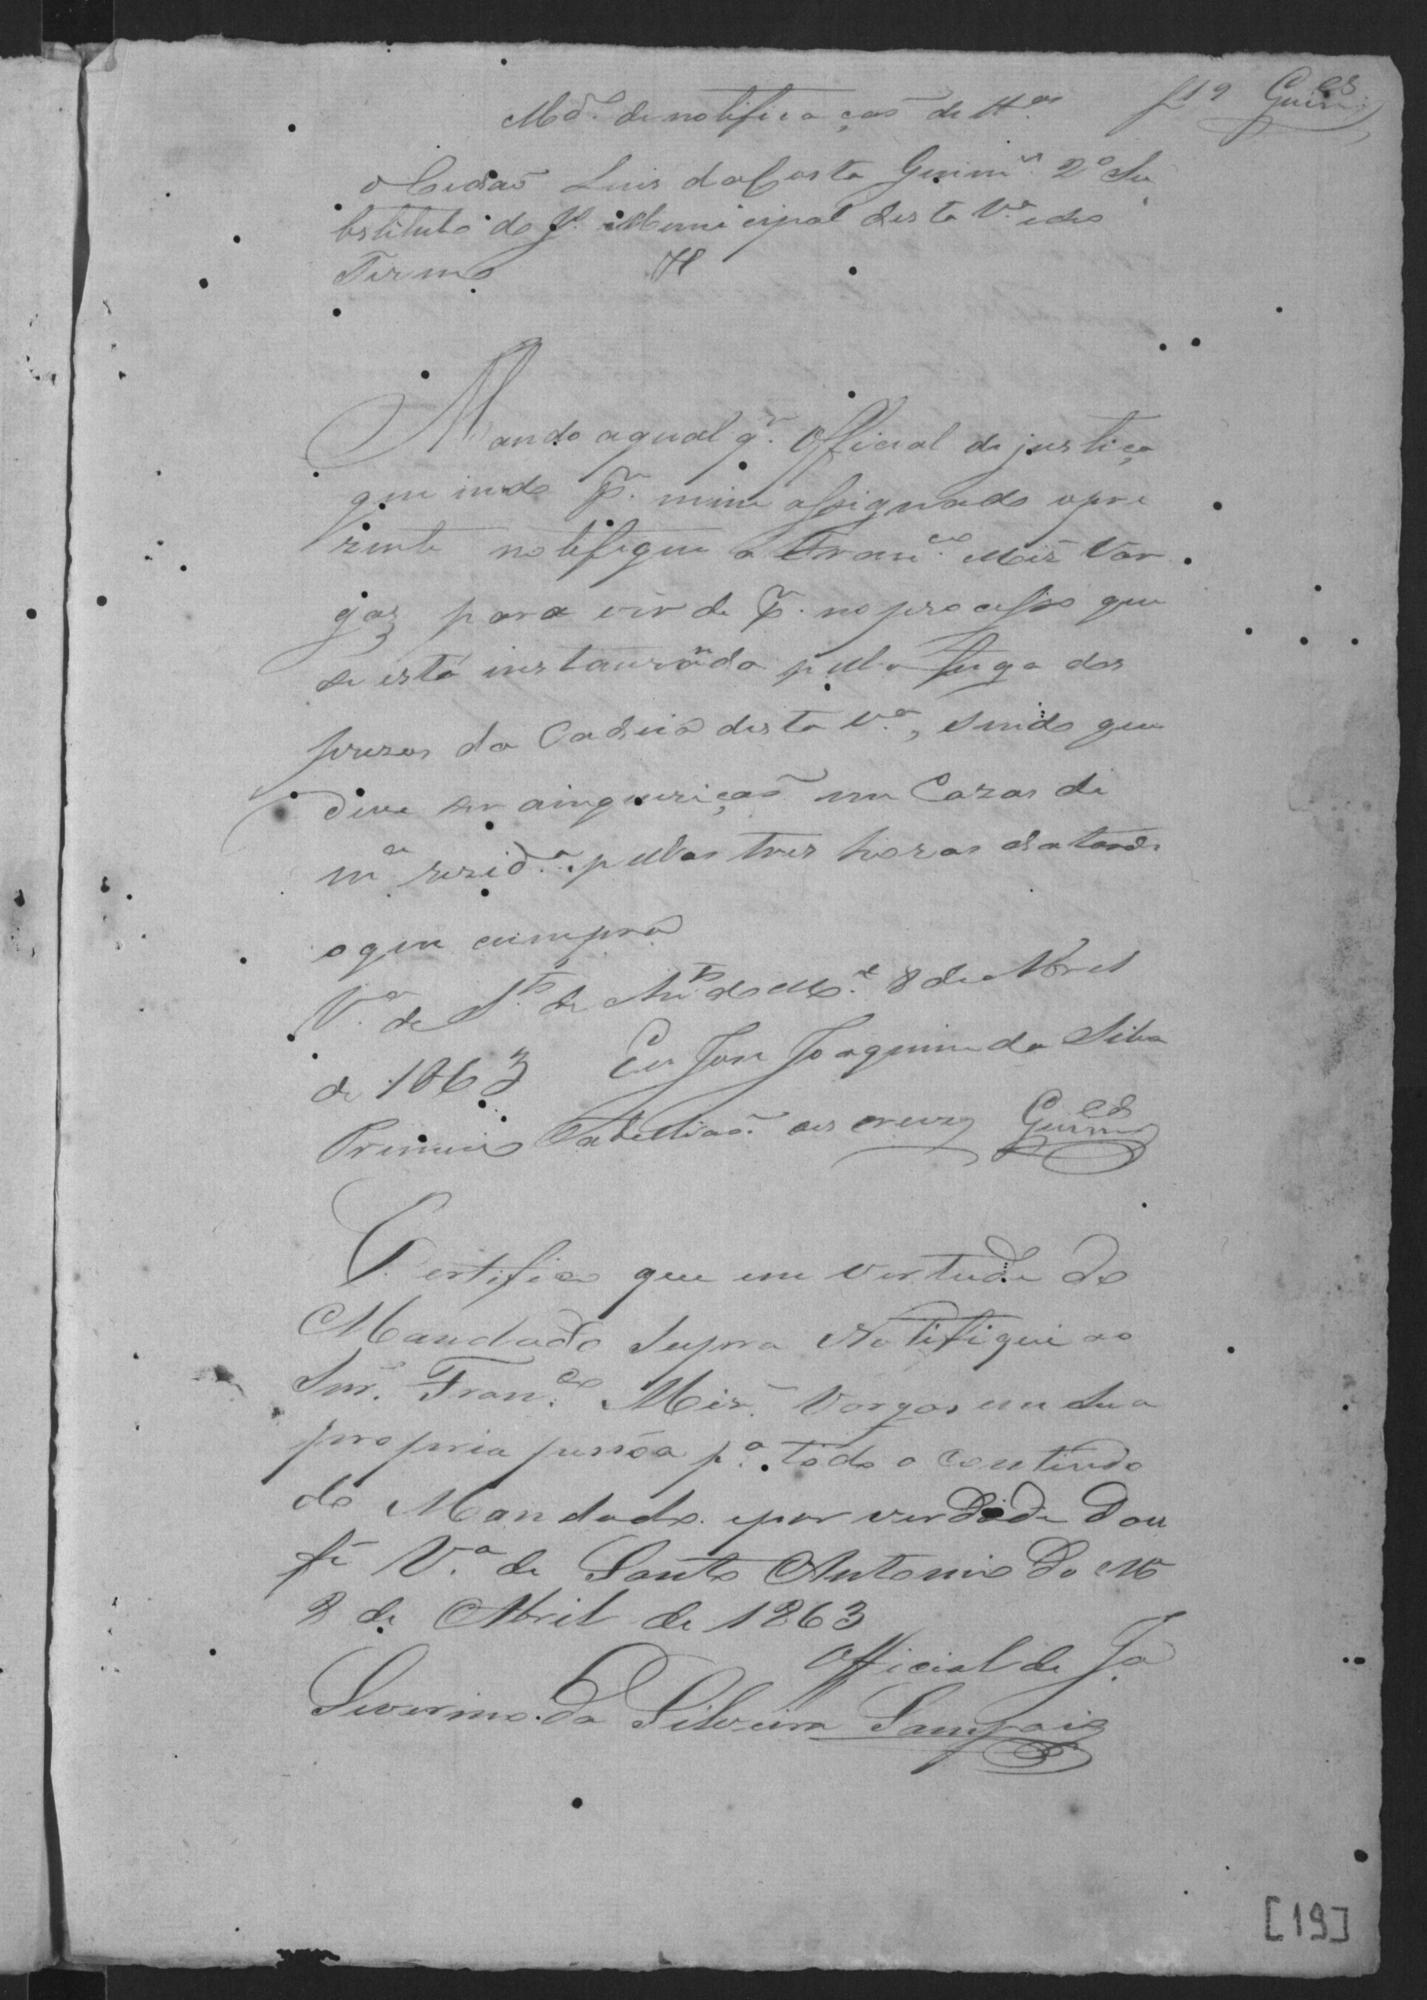 f 19 Guim.es
Md.o de notificação de
o Cidão Luis da Costa Guim.es 2º Su
bstituto do Jz. Municipal desta V.a e do
Termo
Mando a qual q.r Official de justiça
que indo p.r mim assignado o pre
zente notifique a Fran.co Mis Var
gas para vir de no processo que
se está instaurãdo pella fuga dos
prezos da Cadeia desta V.a, sendo que
deve ser a inquirição em Cazas de
m.a rezid.a pellas tres horas da tarde
o que cumpra
V.a de S.to Ant.o do M.e 8 de Abril
de 1863 Eu José Joaquim da Silva
Primeiro Tabellião o escrevy Guim.es
Certifico que em vertude do
Mandado Supra Notifiquei ao
Snr. Fran.co Mis Vargas em Sua
propria pessôa p.a todo o contiudo
do Mandado. e por verdade Dou
fé V.a de Santo Antonio Do M
8 de Abril de 1863
Official de Ja
Severino da Silveira Sampaio
[19]